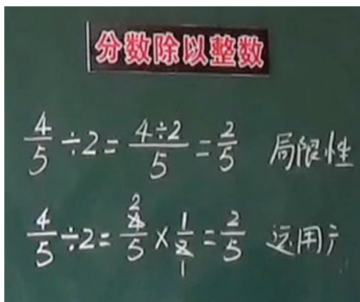 分数除以整数
4/5 ÷ 2 = 4÷2/5 = 2/5 局限性
4/5 ÷ 2 = 4/5 × 1/2 = 2/5 运用广